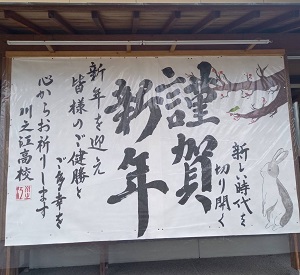 新しい時代を
切り開く
謹賀
新年
新年を迎え
皆様のご健勝と
ご多幸を
心からお祈りします
川之江高校